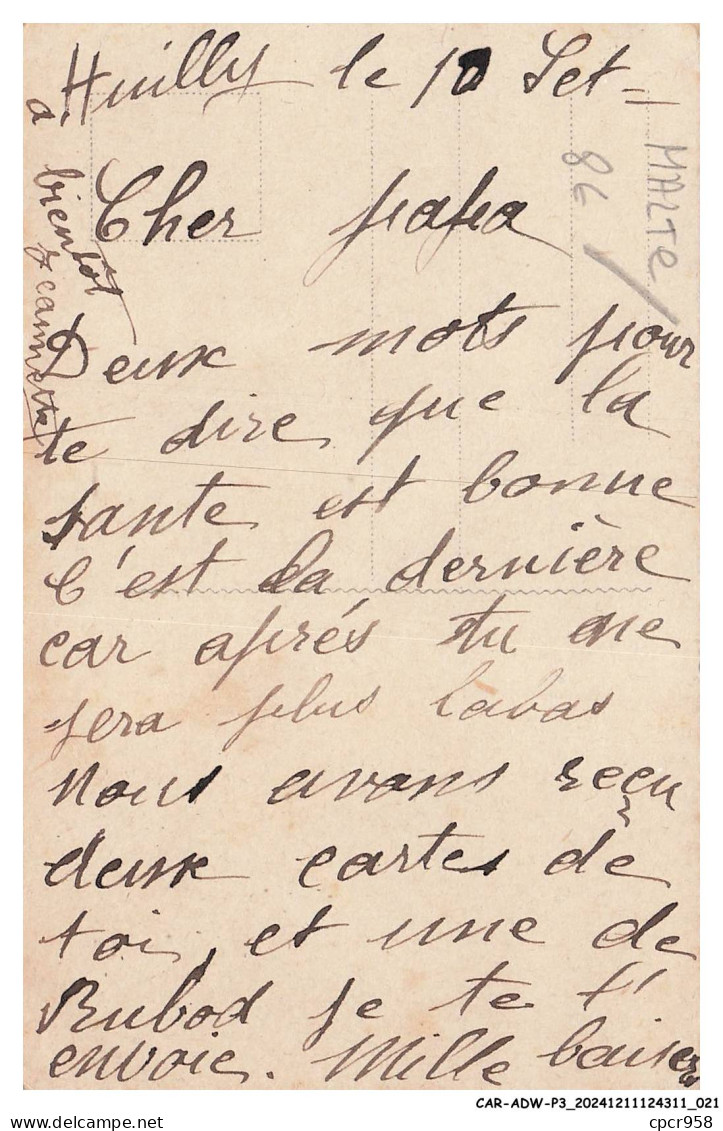 Huilly le 10 Set-
Cher papa
Deux mots pour
te dire que la
sante est bonne
C'est la dernière
car aprés tu ne
sera plus labas
Nous avons reçu
deux cartes de
toi, et une de
Rubod je te l'
envoie. Mille baisers
a bientôt
Jeannette
MALTE
8€
CAR-ADW-P3_20241211124311_021
cpcr958